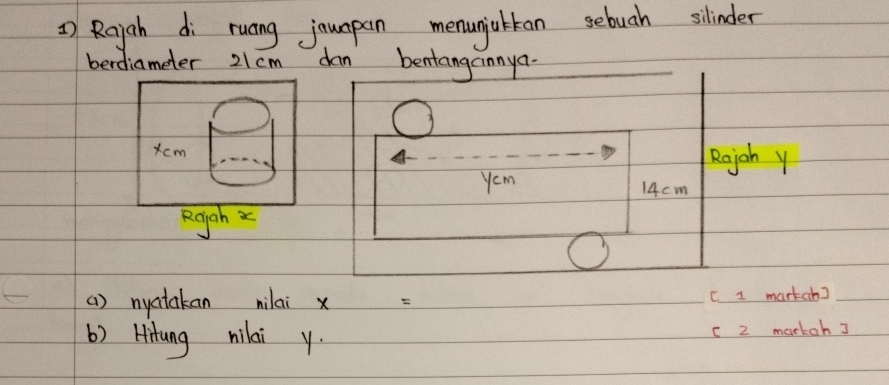 1) Rajah di ruang jawapan menunjukkan sebuah silinder
berdiameter 21cm dan bentangannya.
xcm
Rajah x
ycm
14cm
Rajah y
a) nyatakan nilai x = [ 1 markah]
b) Hitung nilai y. [ 2 markah ]